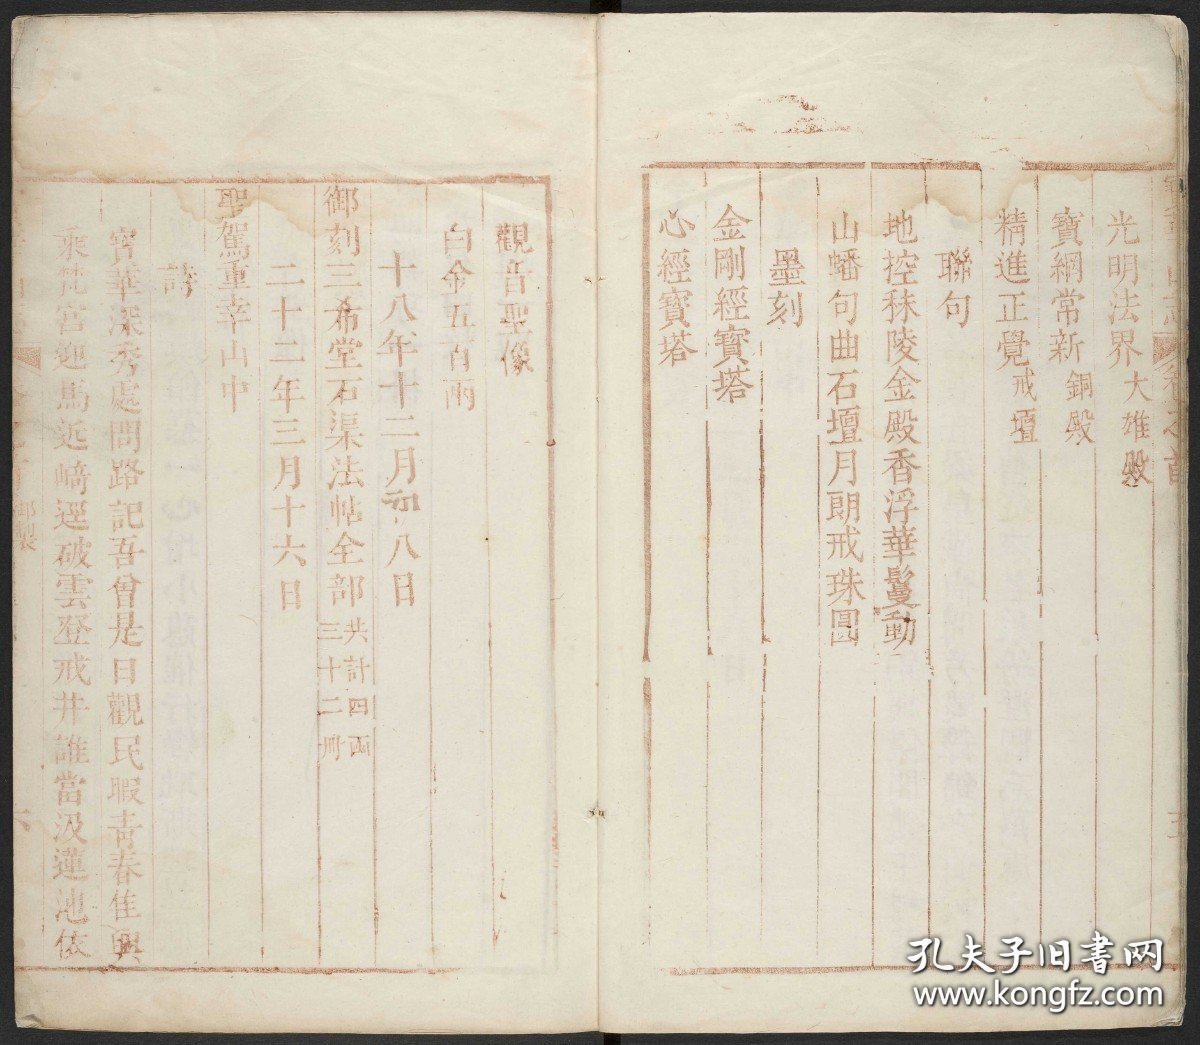 光明法界 大雄殿
寶網常新 銅殿
精進正覺 戒壇
聯句
地控秣陵金殿香浮華鬘動
山蟠句曲石壇月朗戒珠圓
墨刻
金剛經寶塔
心經寶塔
觀音聖像
白金五百兩
十八年十二月初八日
御刻三希堂石渠法帖全部 共計四函
三十二冊
二十二年三月十六日
聖駕重幸山中
詩
寶華深秀處問路記吾曾是日觀民暇青春佳興
乘梵宮迎馬近﨑逕破雲登戒井誰當汲蓮池依
御製
孔夫子旧书网
www.kongfz.com